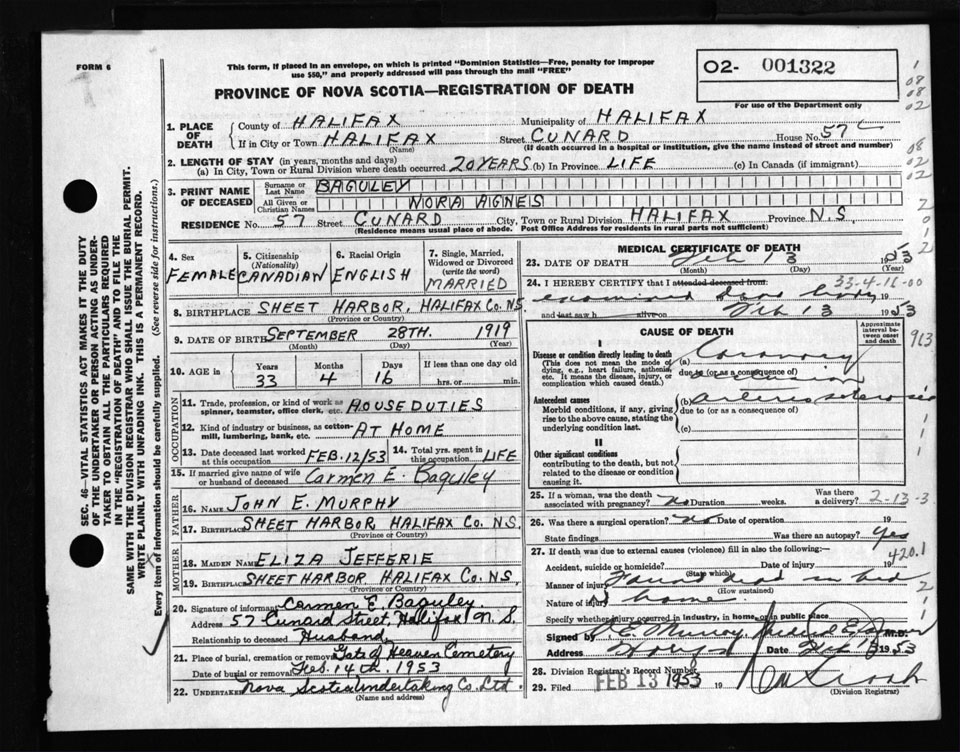 FORM 6
This form, if placed in an envelope, on which is printed "Dominion Statistics—Free, penalty for improper
use $50," and properly addressed will pass through the mail "FREE"
O2- 001322
For use of the Department only
PROVINCE OF NOVA SCOTIA—REGISTRATION OF DEATH
1. PLACE OF DEATH
County of HALIFAX Municipality of HALIFAX
If in City or Town HALIFAX Street CUNARD House No. 57
(Name) (If death occurred in a hospital or institution, give the name instead of street and number)
2. LENGTH OF STAY (in years, months and days)
(a) In City, Town or Rural Division where death occurred 20 YEARS (b) In Province LIFE (c) In Canada (if immigrant)
3. PRINT NAME OF DECEASED
Surname or Last Name BAGULEY
All Given or Christian Names NORA AGNES
RESIDENCE No. 57 Street CUNARD City, Town or Rural Division HALIFAX Province N.S.
(Residence means usual place of abode. Post Office Address for residents in rural parts not sufficient)
4. Sex
FEMALE
5. Citizenship (Nationality)
CANADIAN
6. Racial Origin
ENGLISH
7. Single, Married, Widowed or Divorced (write the word)
MARRIED
8. BIRTHPLACE SHEET HARBOR, HALIFAX Co. NS
(Province or Country)
9. DATE OF BIRTH SEPTEMBER 28TH. 1919
(Month) (Day) (Year)
10. AGE in Years Months Days If less than one day
33 4 16 hrs. or min.
OCCUPATION
11. Trade, profession, or kind of work as spinner, teamster, office clerk, etc. HOUSE DUTIES
12. Kind of industry or business, as cotton-mill, lumbering, bank, etc. AT HOME
13. Date deceased last worked at this occupation FEB. 12/53
14. Total yrs. spent in this occupation LIFE
15. If married give name of wife or husband of deceased Carmen E. Baguley
FATHER
16. NAME JOHN E. MURPHY
17. BIRTHPLACE SHEET HARBOR HALIFAX Co. NS.
(Province or Country)
MOTHER
18. MAIDEN NAME ELIZA JEFFERIE
19. BIRTHPLACE SHEET HARBOR, HALIFAX Co. NS.
(Province or Country)
20. Signature of informant Carmen E. Baguley.
Address 57 Cunard Street, Halifax N. S.
Relationship to deceased Husband
21. Place of burial, cremation or removal Gate of Heaven Cemetery
Date of burial or removal Feb. 14th. 1953
22. UNDERTAKER Nova Scotia Undertaking Co. Ltd.
(Name and address)
MEDICAL CERTIFICATE OF DEATH
23. DATE OF DEATH Feb 13 1953
(Month) (Day) (Year)
33-4-16-00
24. I HEREBY CERTIFY that I attended deceased from:
examined dead body
and last saw h alive on Feb 13 1953
CAUSE OF DEATH
Approximate interval between onset and death
I
Disease or condition directly leading to death
(This does not mean the mode of dying, e.g., heart failure, asthenia, etc. It means the disease, injury, or complication which caused death.)
(a) Coronary
due to (or as a consequence of)
occlusion
Antecedent causes
Morbid conditions, if any, giving rise to the above cause, stating the underlying condition last.
(b)
due to (or as a consequence of)
(c)
II
Other significant conditions
contributing to the death, but not related to the disease or condition causing it.
25. If a woman, was the death associated with pregnancy? no Duration weeks. Was there a delivery?
2-13-3
26. Was there a surgical operation? no Date of operation 19
State findings Was there an autopsy? yes
27. If death was due to external causes (violence) fill in also the following:—
420.1
Accident, suicide or homicide? Date of injury 19
(State which)
Manner of injury Found dead in bed
(How sustained)
Nature of injury at home
Specify whether injury occurred in industry, in home, or in public place
Signed by E Murray M.D.
Address Date Feb 13 1953
28. Division Registrar's Record Number
29. Filed FEB 13 1953 19
(Division Registrar)
SEC. 46—VITAL STATISTICS ACT MAKES IT THE DUTY
OF THE UNDERTAKER OR PERSON ACTING AS UNDER-
TAKER TO OBTAIN ALL THE PARTICULARS REQUIRED
IN THE "REGISTRATION OF DEATH" AND TO FILE THE
SAME WITH THE DIVISION REGISTRAR WHO SHALL ISSUE THE BURIAL PERMIT.
WRITE PLAINLY WITH UNFADING INK. THIS IS A PERMANENT RECORD.
Every item of information should be carefully supplied. (See reverse side for instructions.)
1
08
08
02
08
02
02
2
0
2
2
913
1
1
1
2
1